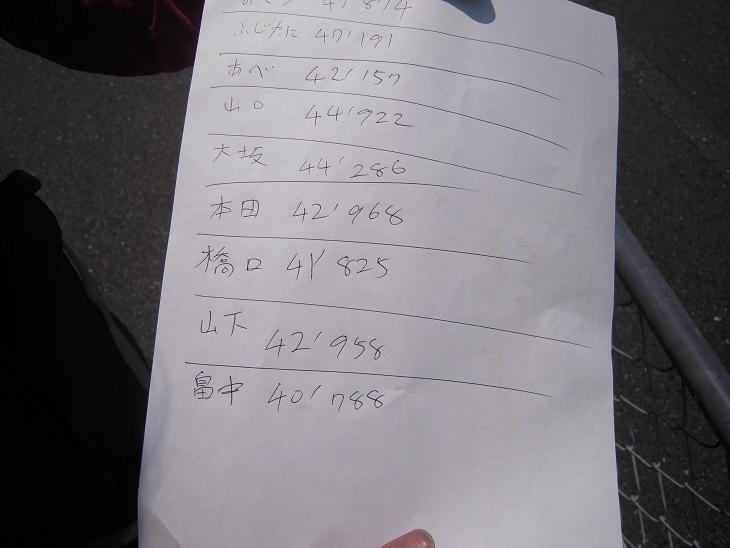 41'874
ふじたに 47'191
あべ 42'157
山口 44'922
大坂 44'286
本田 42'968
橋口 41'825
山下 42'958
畠中 40'788